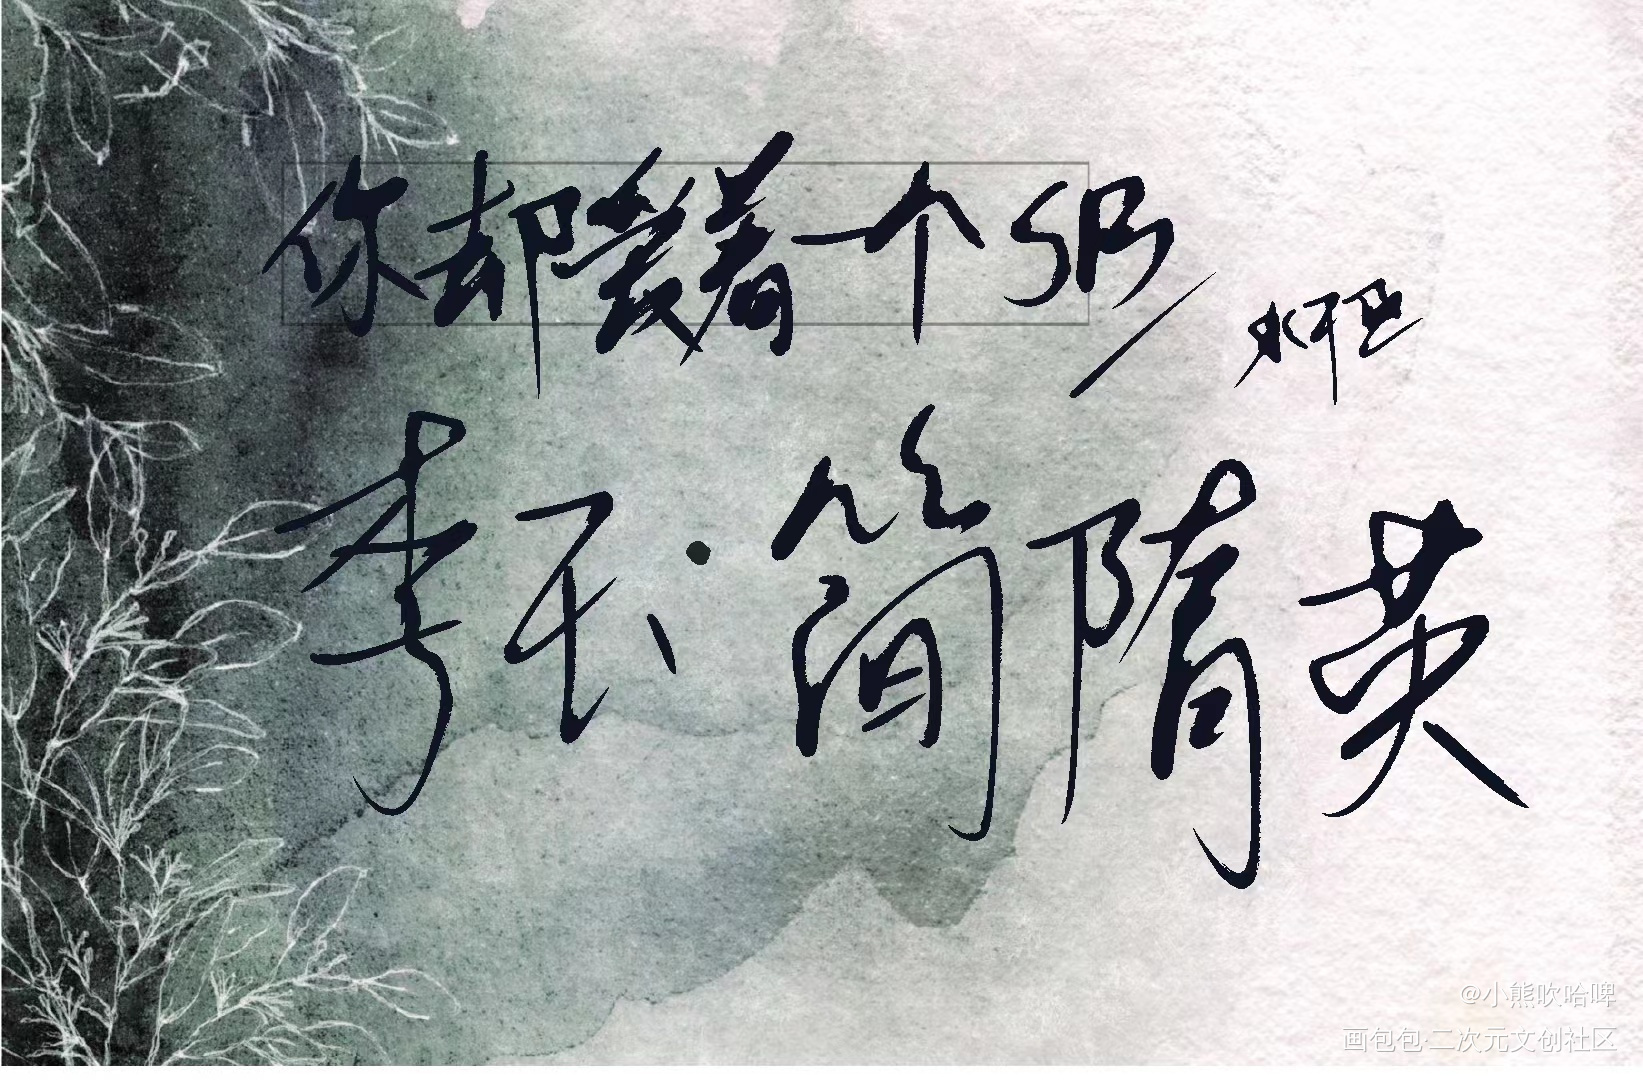 你却爱着一个SB
水千丞
李玉·简隋英
@小熊吹哈啤
画包包·二次元文创社区